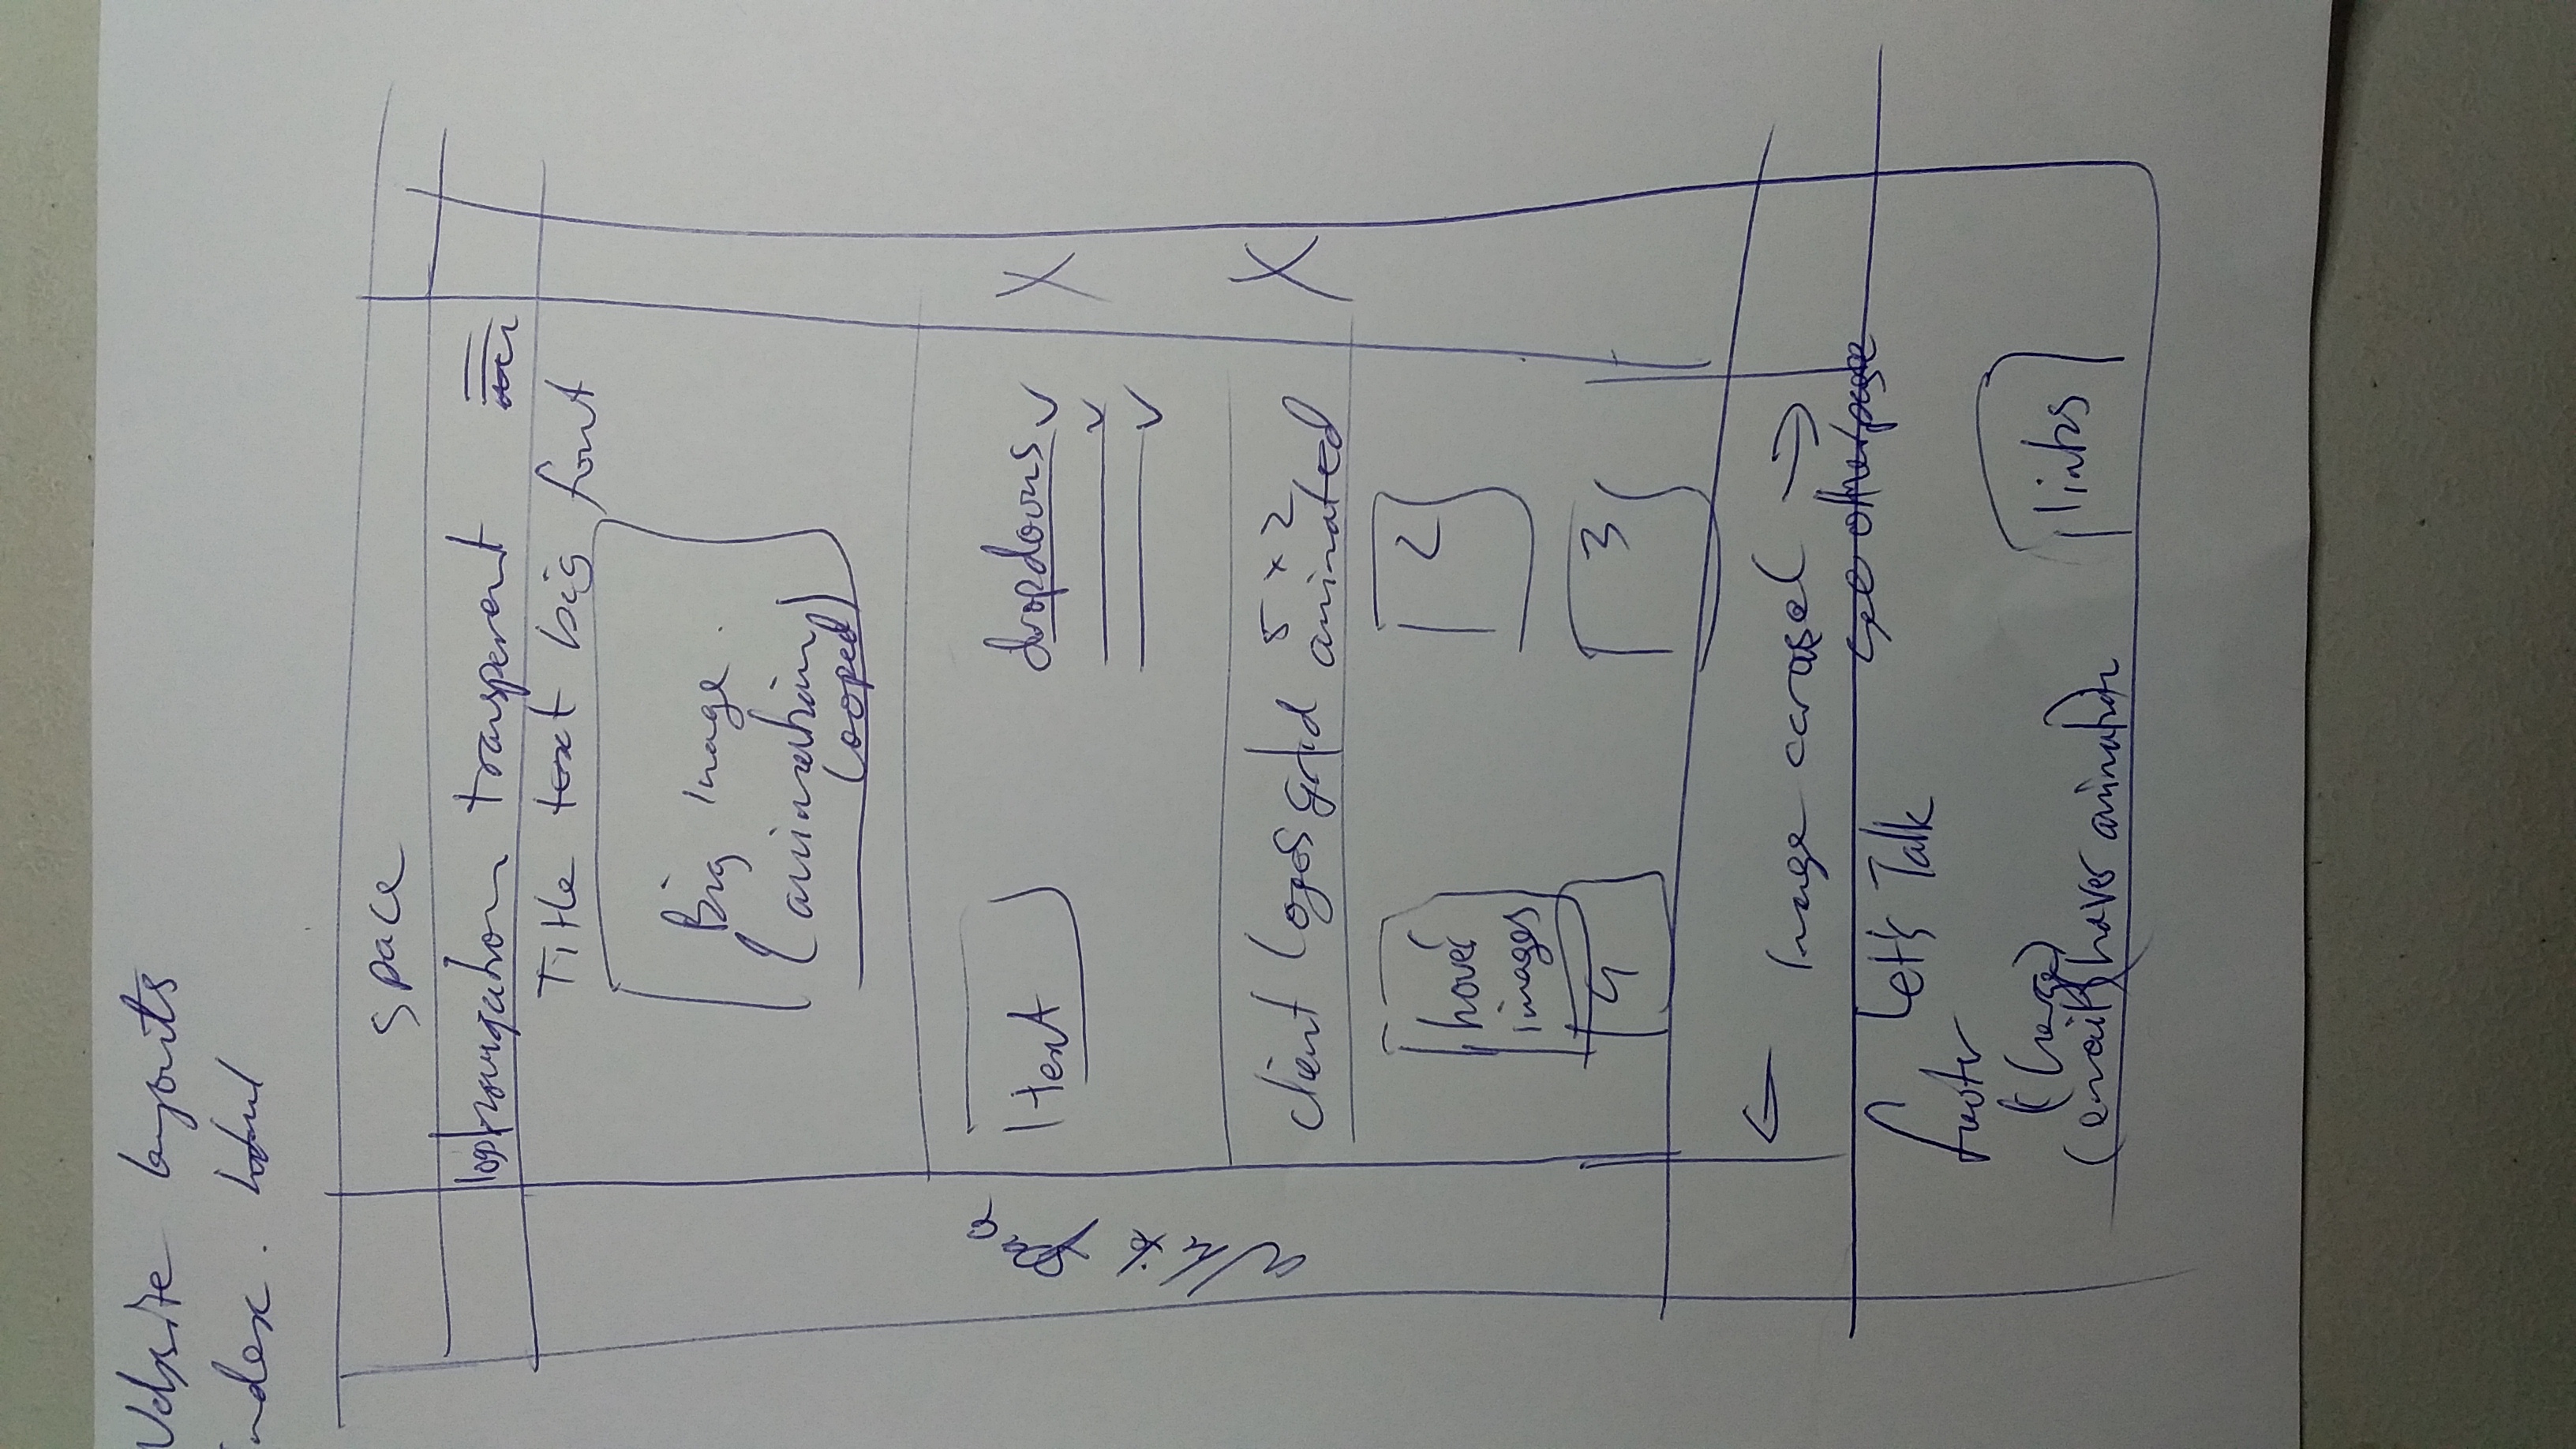 Website layouts
index. html
space
logo navigation transparent
Title text big font
Big Image.
(animation
looped)
white space
text
dropdowns
X
client logos grid 5 x 2
animated
X
hover
images
2
4
3
← Image carosel →
see other page
Let's Talk
footer
(large)
(email) hover animation
links